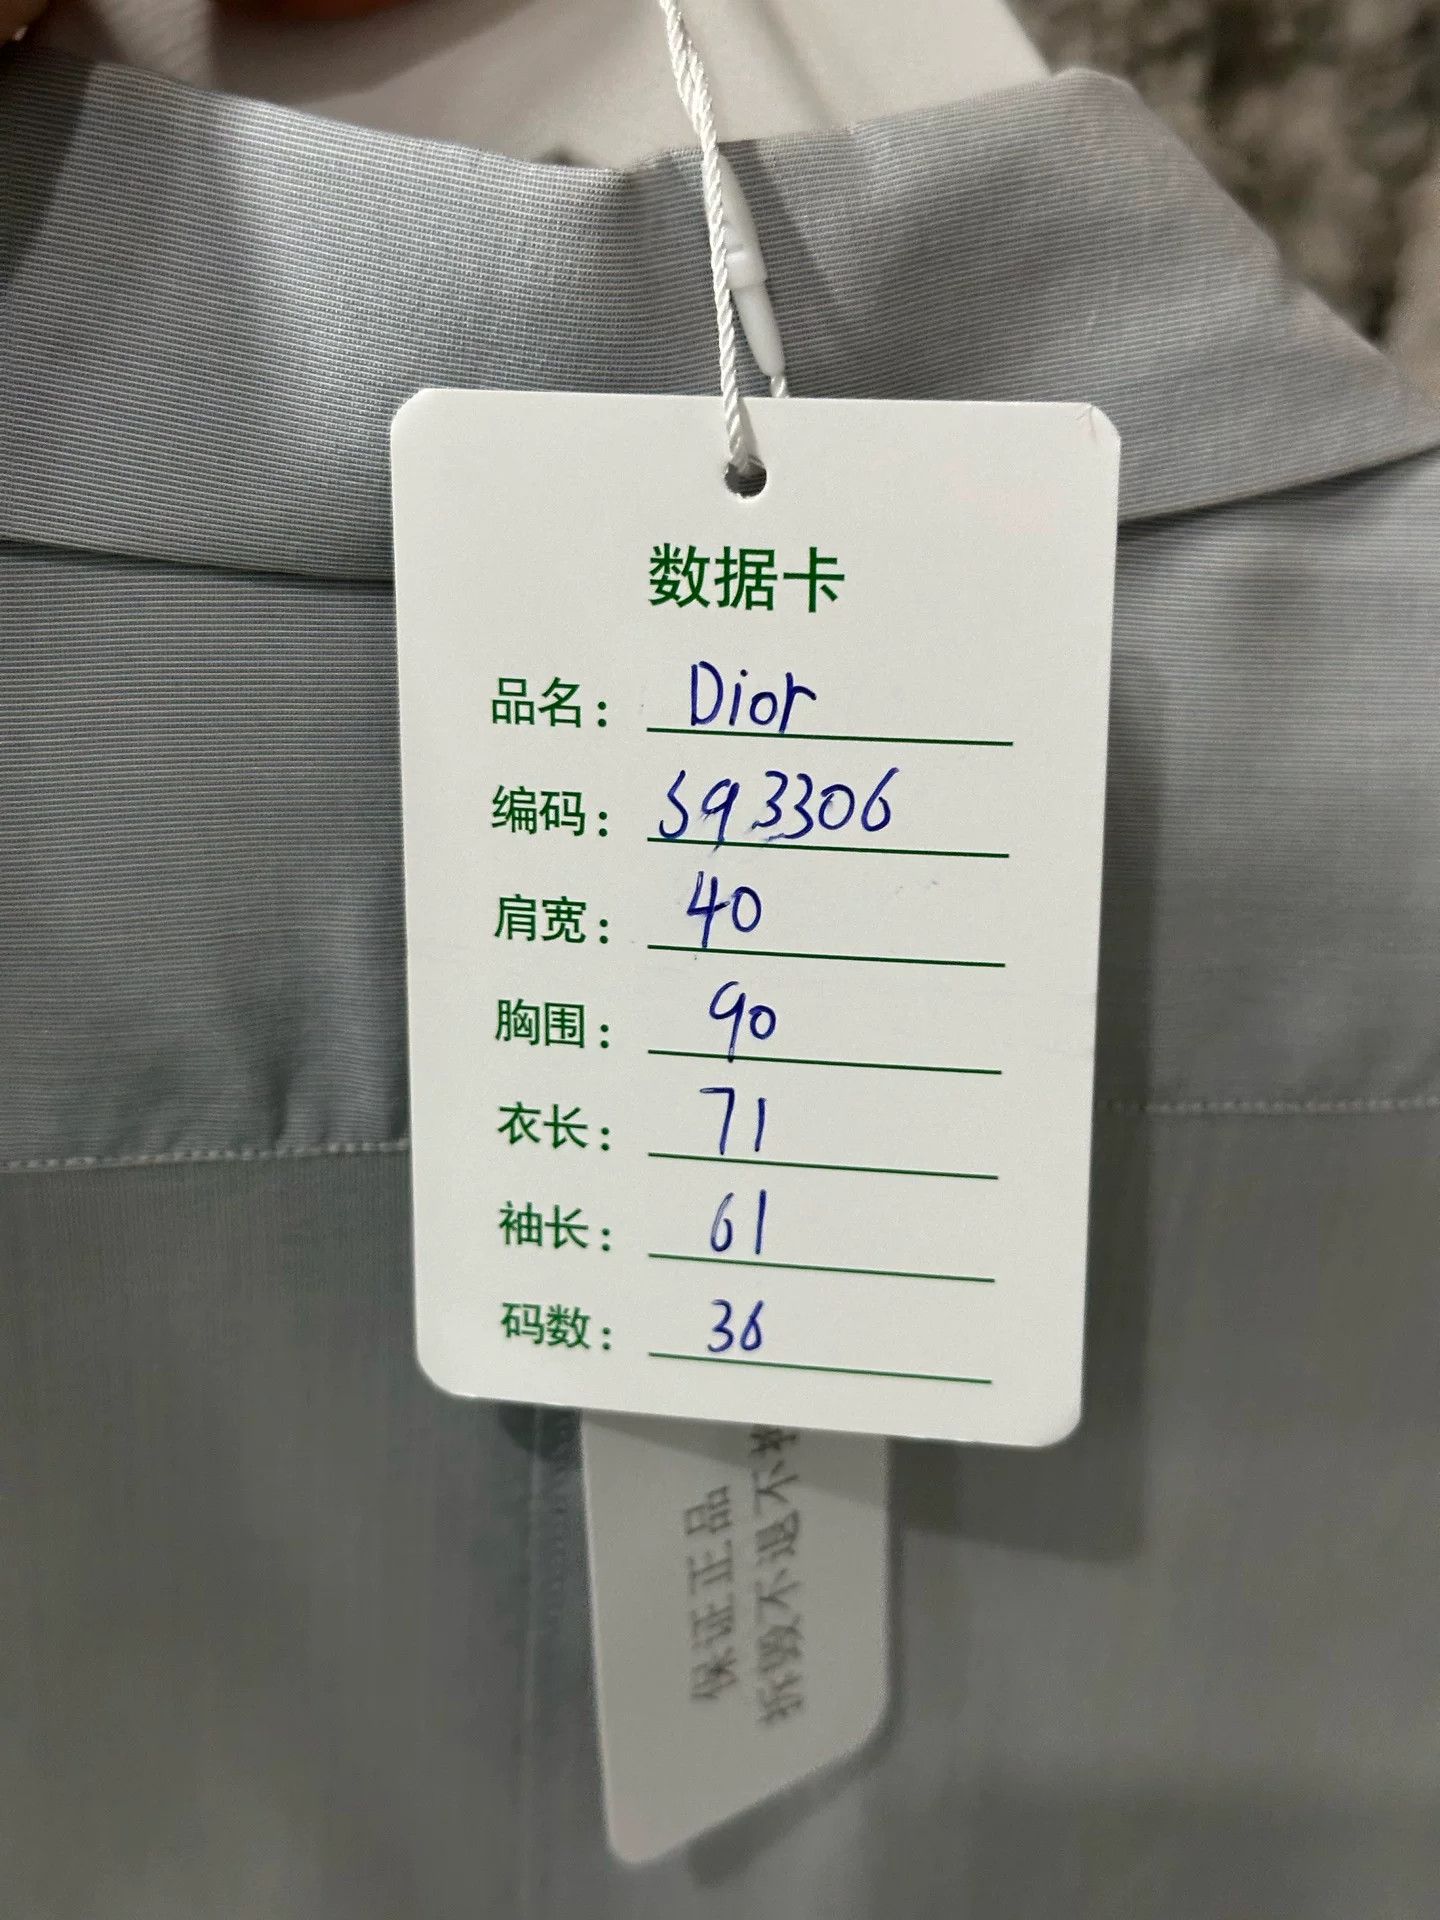 数据卡
品名: Dior
编码: S93306
肩宽: 40
胸围: 90
衣长: 71
袖长: 61
码数: 36
保证正品
拆毁不退不换